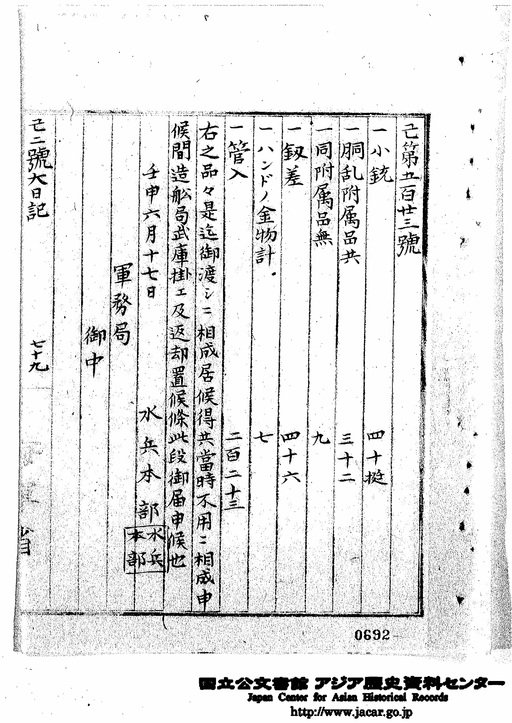 己第五百廿三號
一小銃 四十挺
一胴乱附属品共 三十二
一同附属品無 九
一釼差 四十六
一ハンドノ金物計 七
一管入 二百二十三
右之品々是迄御渡シニ相成居候得共當時不用ニ相成申
候間造舩局武庫掛エ及返却置候條此段御届申候也
壬申六月十七日
水兵本部
水兵本部
軍務局
御中
己二號大日記
七十九
省
0692
国立公文書館 アジア歴史資料センター
Japan Center for Asian Historical Records
http://www.jacar.go.jp